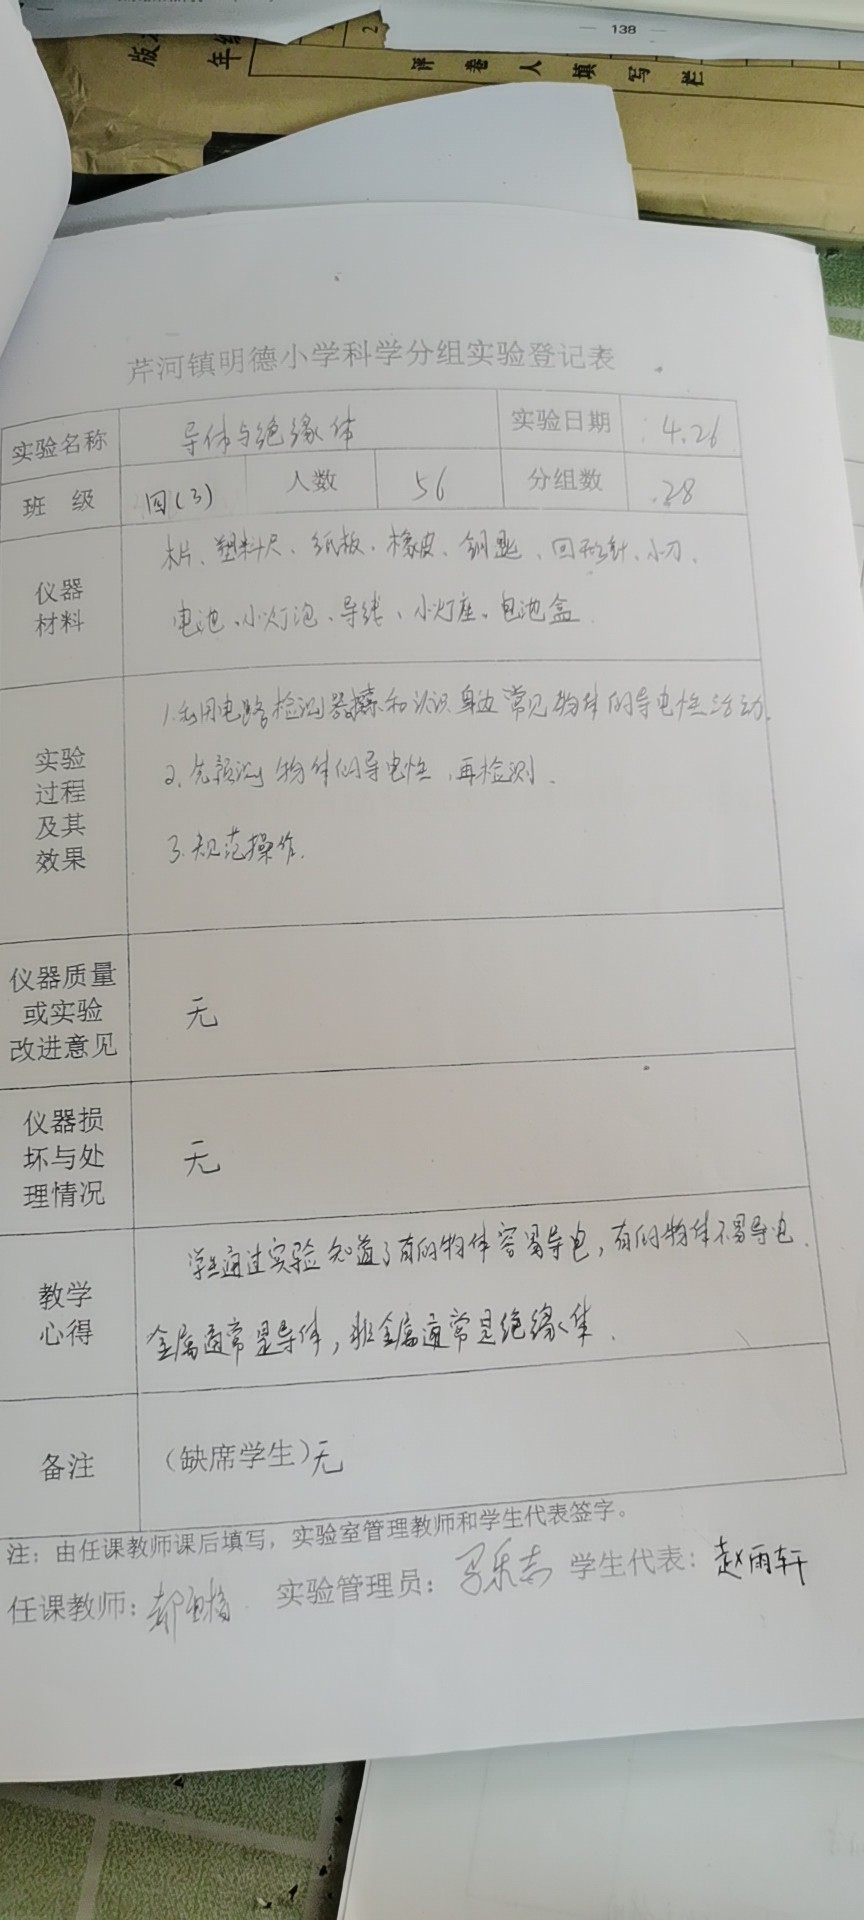 138
版
年级
2
评卷人填写栏
芹河镇明德小学科学分组实验登记表
实验名称 导体与绝缘体 实验日期 4.26
班 级 四(3) 人数 56 分组数 28
仪器材料 木片、塑料尺、纸板、橡皮、钥匙、回形针、小刀、
电池、小灯泡、导线、小灯座、电池盒.
实验过程及其效果 1.利用电路检测器探索和认识身边常见物体的导电性活动.
2.先预测物体的导电性,再检测.
3.规范操作.
仪器质量或实验改进意见 无
仪器损坏与处理情况 无
教学心得 学生通过实验知道了有的物体容易导电,有的物体不易导电.
金属通常是导体,非金属通常是绝缘体.
备注 (缺席学生)无
注:由任课教师课后填写,实验室管理教师和学生代表签字。
任课教师: 实验管理员: 学生代表:赵雨轩